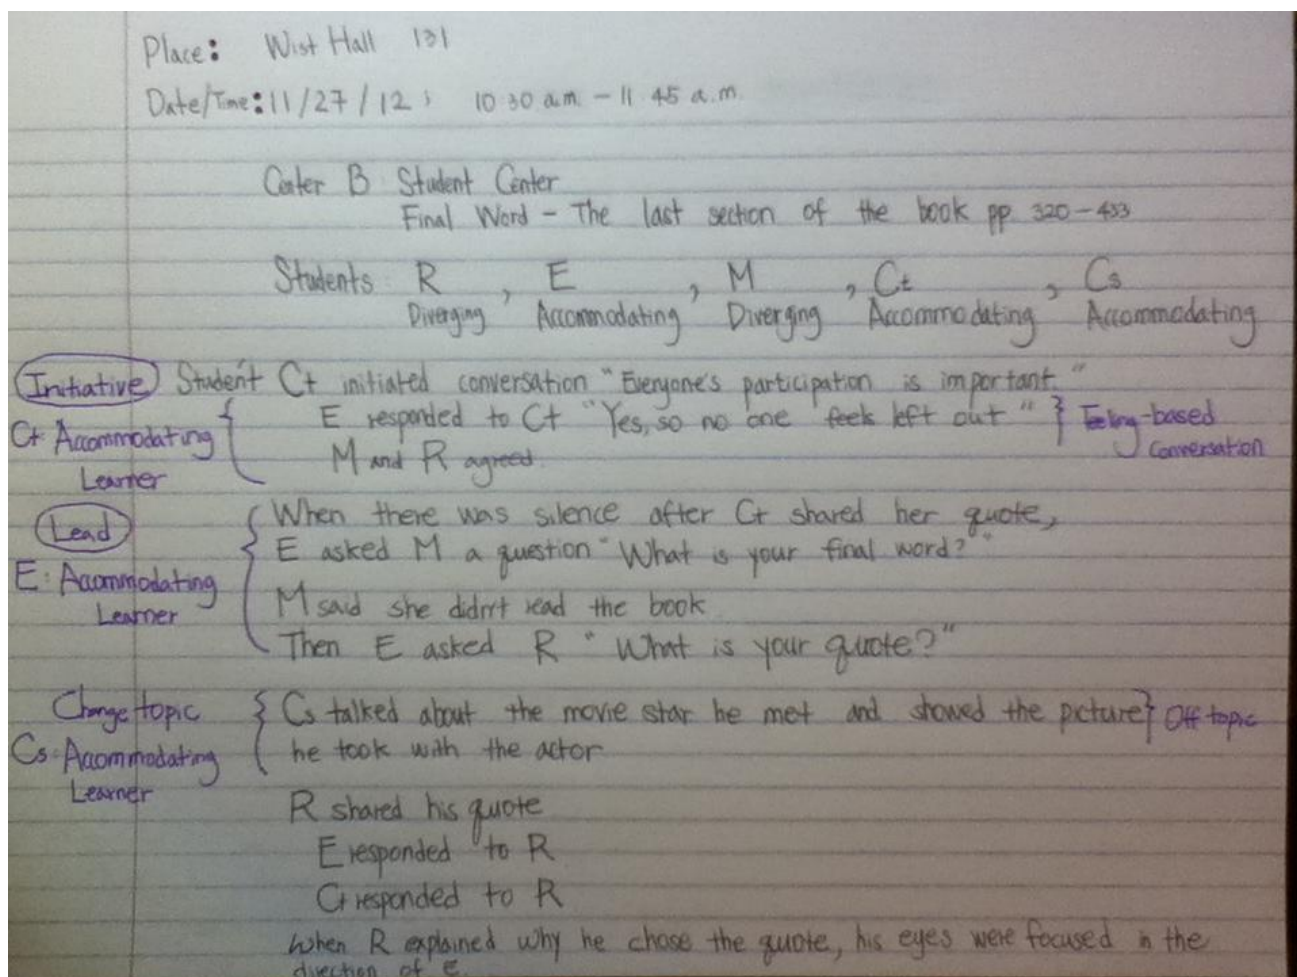 Place: Wist Hall 131
Date/Time: 11/27/12; 10:30 a.m. - 11:45 a.m.
Center B Student Center
Final Word - The last section of the book pp 320-433
Students R, E, M, Ct, Cs
Diverging Accommodating Diverging Accommodating Accommodating
Initiative Student Ct initiated conversation "Everyone's participation is important."
Ct Accommodating Learner
E responded to Ct "Yes, so no one feels left out" Feeling-based Conversation
M and R agreed.
Lead
E: Accommodating Learner
When there was silence after Ct shared her quote,
E asked M a question "What is your final word?"
M said she didn't read the book
Then E asked R "What is your quote?"
Change topic
Cs: Accommodating Learner
Cs talked about the movie star he met and showed the picture Off topic
he took with the actor
R shared his quote
E responded to R
Ct responded to R
When R explained why he chose the quote, his eyes were focused in the
direction of E.